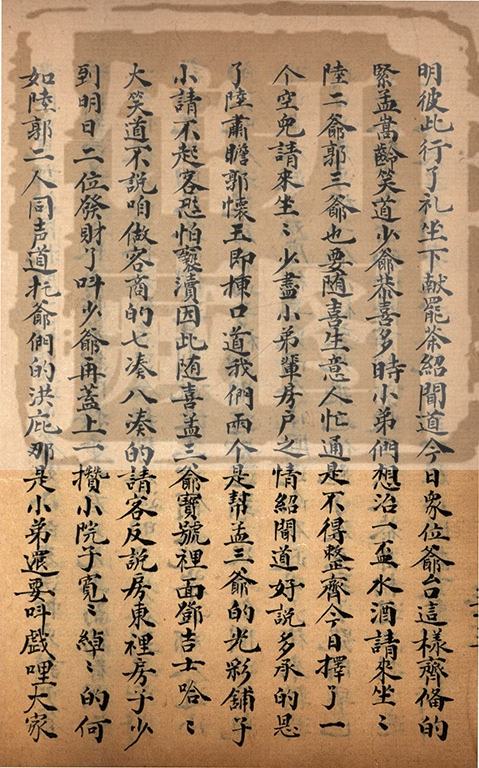 明彼此行了礼坐下献罷茶紹聞道今日衆位爺台這樣齊俻的
緊孟嵩齡笑道少爺恭喜多時小弟們想治一盃水酒請來坐〻
陸二爺郭三爺也要随喜生意人忙通是不得整齊今日擇了一
个空兒請來坐〻少盡小弟輩房户之情紹聞道好説多承的恳
了陸肅瞻郭懷玉即揀口道我們兩个是幇孟三爺的光彩鋪子
小請不起客恐怕褻瀆因此随喜孟三爺寳號裡面鄧吉士哈〻
大笑道不說咱做客商的七凑八凑的請客反説房東裡房子少
到明日二位發財了呌少爺再蓋上一攢小院子寛〻綽〻的何
如陸郭二人同声道托爺們的洪庇那是小弟還要呌戲哩大家